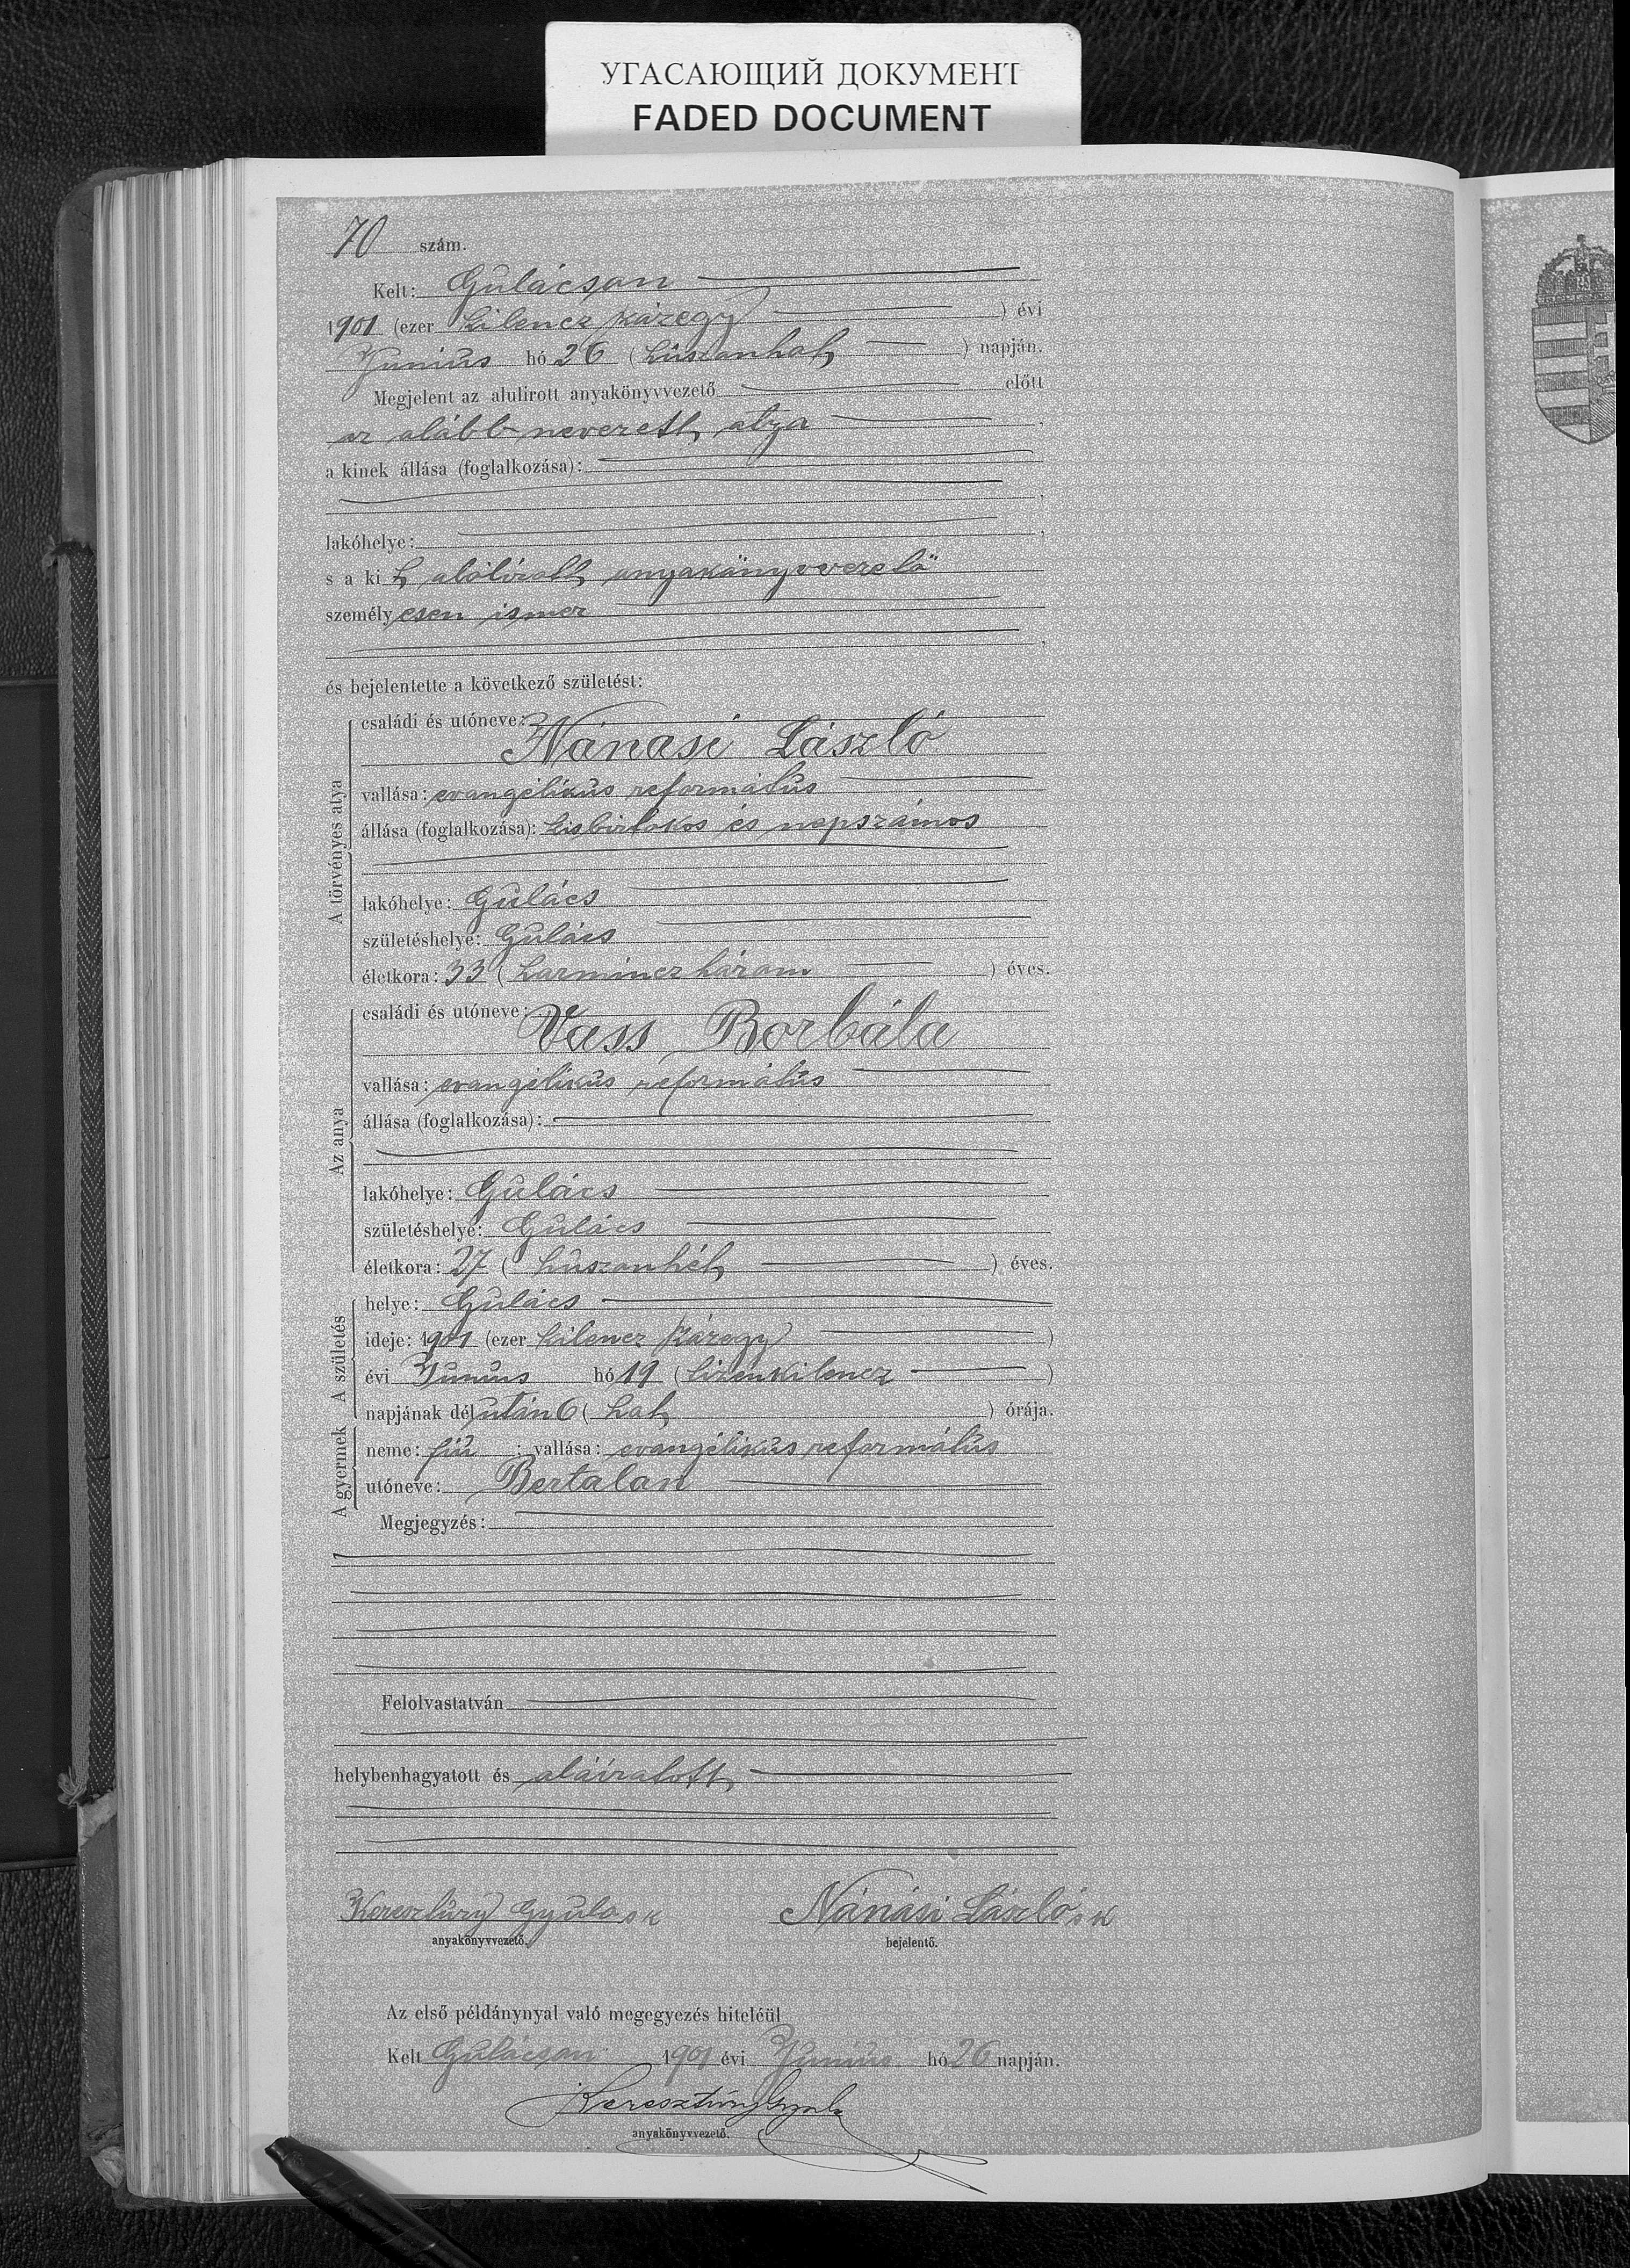 УГАСАЮЩИЙ ДОКУМЕНТ
FADED DOCUMENT
70 szám.
Kelt: Gulácson
1901 (ezer kilencz százegy) évi
Junius hó 26 (huszonhat) napján.
Megjelent az alulirott anyakönyvvezető előtt
az alább nevezett atya,
a kinek állása (foglalkozása):
lakóhelye:
s a kit alólirott anyakönyvvezető
személyesen ismer
és bejelentette a következő születést:
A törvényes atya
családi és utóneve:
Nánási László
vallása: evangélikus református
állása (foglalkozása): kisbirtokos és napszámos
lakóhelye: Gulács
születéshelye: Gulács
életkora: 33 (harmincz három) éves.
Az anya
családi és utóneve:
Vass Borbála
vallása: evangélikus református
állása (foglalkozása):
lakóhelye: Gulács
születéshelye: Gulács
életkora: 27 (huszonhét) éves.
A születés
helye: Gulács
ideje: 1901 (ezer kilencz százegy)
évi Junius hó 19 (tizenkilencz)
napjának délután 6 (hat) órája.
A gyermek
neme: fiú; vallása: evangélikus református
utóneve: Bertalan
Megjegyzés:
Felolvastatván
helybenhagyatott és aláiratott
Keresztúry Gyula sk Nánási László sk
anyakönyvvezető. bejelentő.
Az első példánynyal való megegyezés hiteléül
Kelt Gulácson 1901 évi Junius hó 26 napján.
Keresztúry Gyula
anyakönyvvezető.